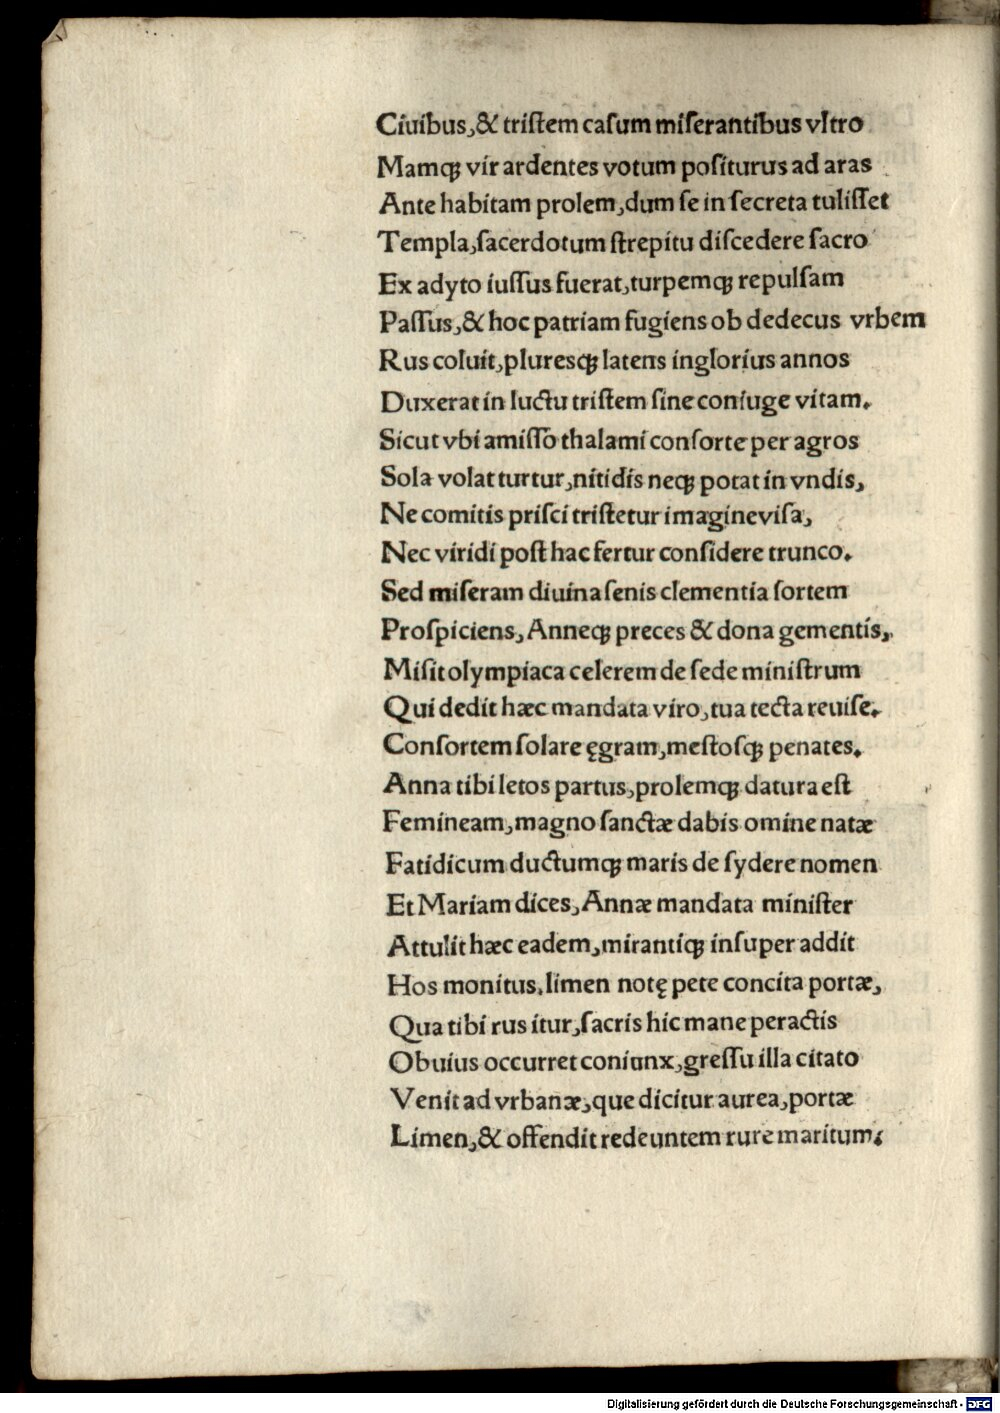 Ciuibus,& tristem casum miserantibus vltro
Mamqꝫ vir ardentes votum positurus ad aras
Ante habitam prolem,dum se in secreta tulisset
Templa,sacerdotum strepitu discedere sacro
Ex adyto iussus fuerat,turpemqꝫ repulsam
Passus,& hoc patriam fugiens ob dedecus vrbem
Rus coluit,pluresqꝫ latens inglorius annos
Duxerat in luctu tristem sine coniuge vitam.
Sicut vbi amisso thalami consorte per agros
Sola volat turtur,nitidis neqꝫ potat in vndis,
Ne comitis prisci tristetur imagine visa,
Nec viridi post hac fertur considere trunco.
Sed miseram diuina senis clementia sortem
Prospiciens,Anneqꝫ preces & dona gementis,
Misit olympiaca celerem de sede ministrum
Qui dedit hæc mandata viro,tua tecta reuise.
Consortem solare ęgram,mestosqꝫ penates.
Anna tibi letos partus,prolemqꝫ datura est
Femineam,magno sanctæ dabis omine natæ
Fatidicum ductumqꝫ maris de sydere nomen
Et Mariam dices,Annæ mandata minister
Attulit hæc eadem,mirantiqꝫ insuper addit
Hos monitus.limen notę pete concita portæ,
Qua tibi rus itur,sacris hic mane peractis
Obuius occurret coniunx,gressu illa citato
Venit ad vrbanæ,que dicitur aurea,portæ
Limen,& offendit redeuntem rure maritum.
Digitalisierung gefördert durch die Deutsche Forschungsgemeinschaft - DFG